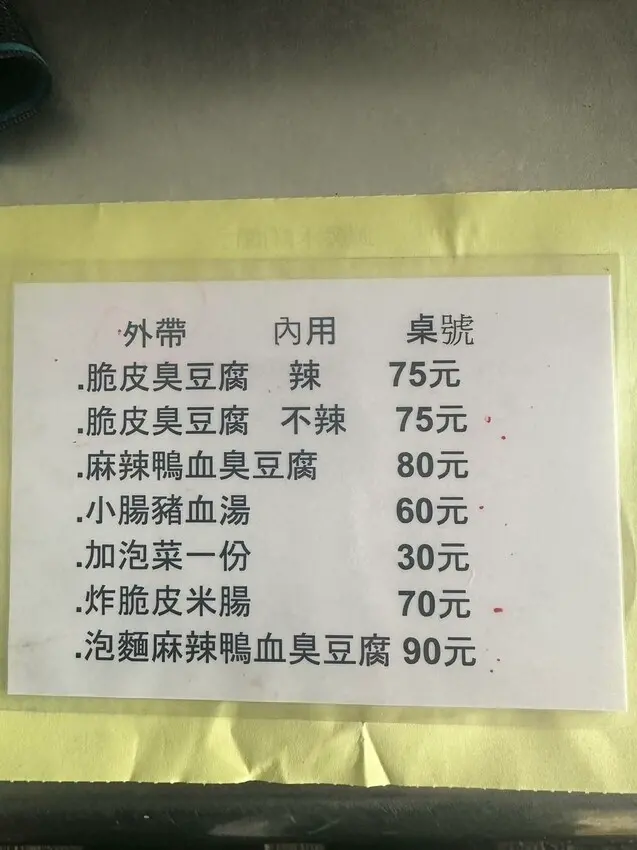 外帶 內用 桌號
.脆皮臭豆腐 辣 75元
.脆皮臭豆腐 不辣 75元
.麻辣鴨血臭豆腐 80元
.小腸豬血湯 60元
.加泡菜一份 30元
.炸脆皮米腸 70元
.泡麵麻辣鴨血臭豆腐 90元